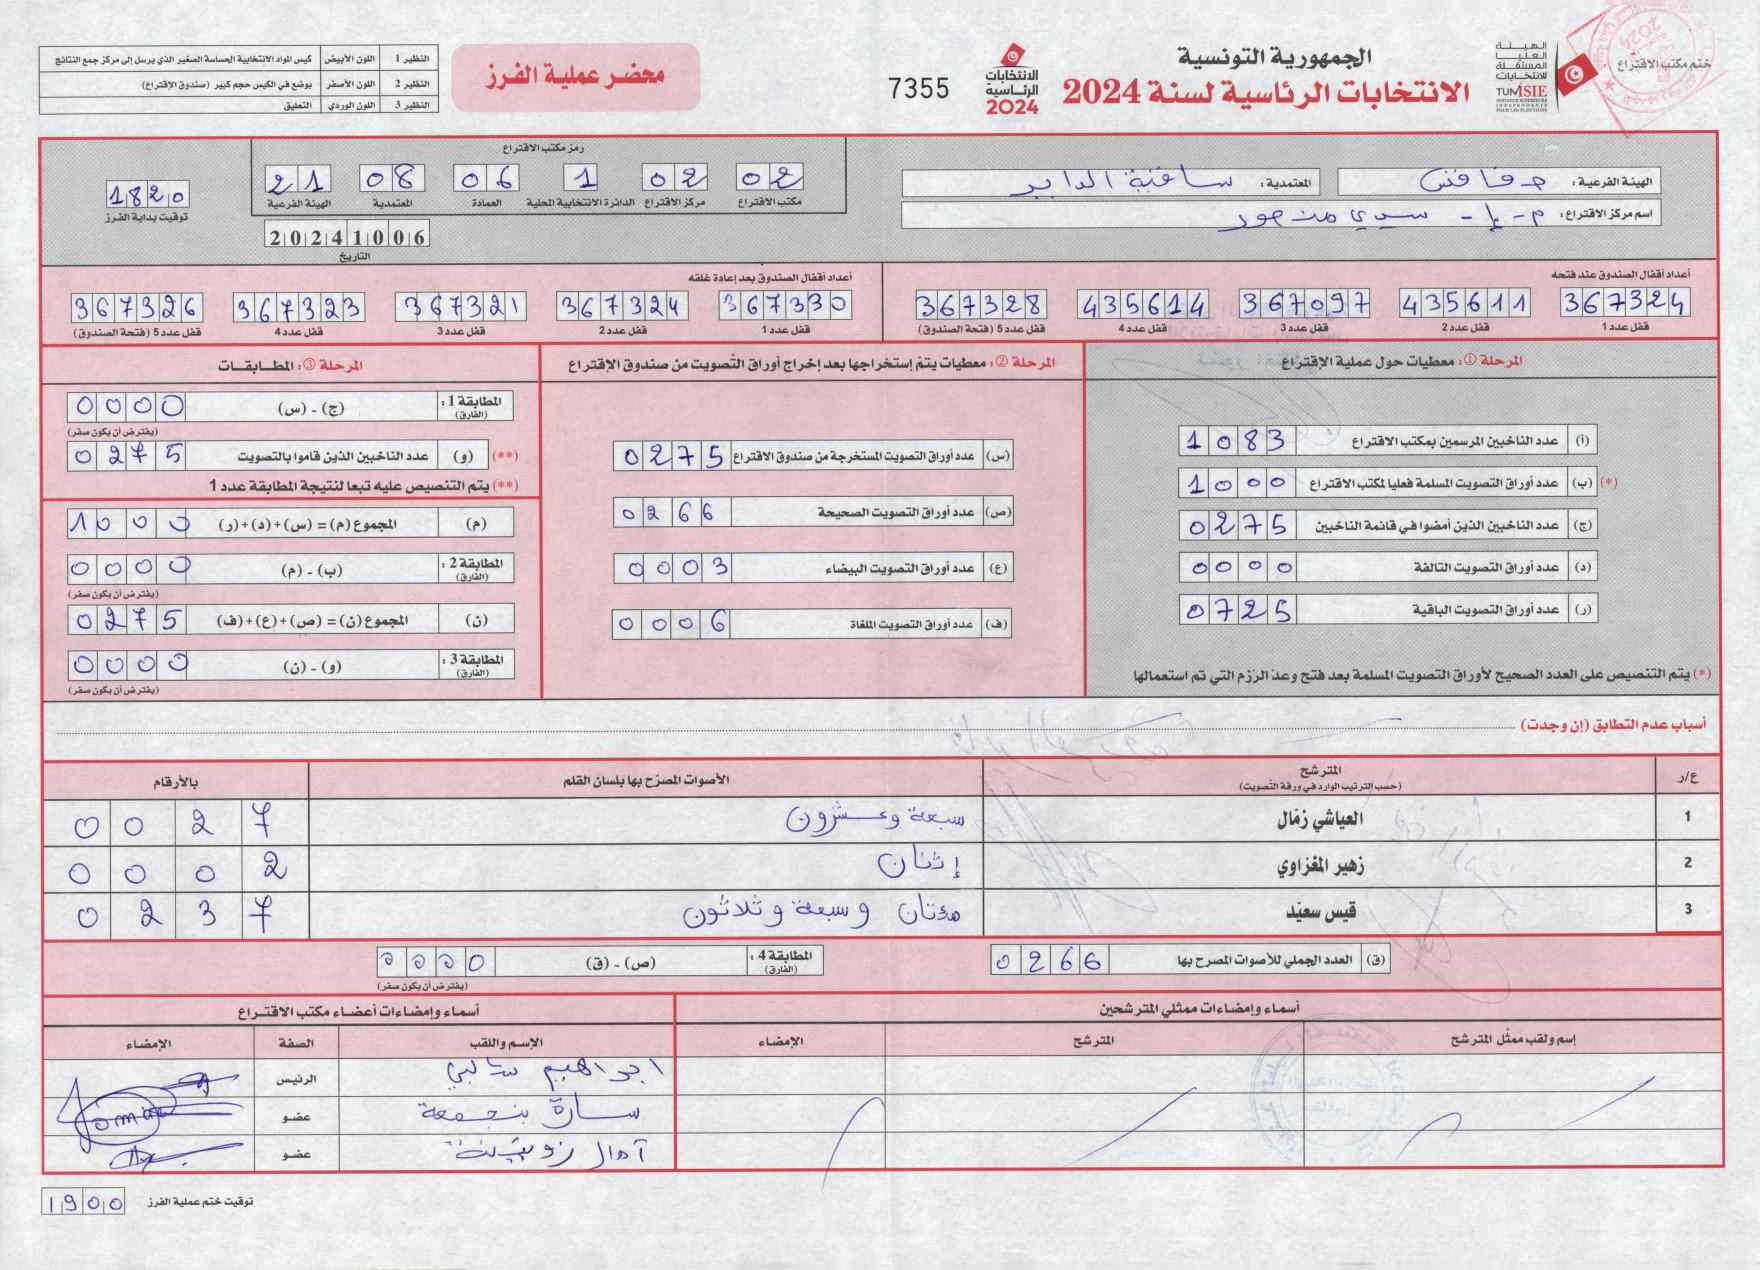 ختم مكتب الاقتراع
الهيئة
العليا
المستقلة
للانتخابات
TUNISIE
الجمهورية التونسية
الانتخابات الرئاسية لسنة 2024
الانتخابات
الرئاسية
2024
7355
محضر عملية الفرز
النظير 1 اللون الأبيض كيس المواد الانتخابية الحساسة الصغير الذي يرسل إلى مركز جمع النتائج
النظير 2 اللون الأصفر يوضع في الكيس حجم كبير (صندوق الإقتراع)
النظير 3 اللون الوردي التعليق
الهيئة الفرعية : صفاقس
المعتمدية : ساقية الداير
اسم مركز الإقتراع : م - إ - سيدي منصور
رمز مكتب الاقتراع
02 02 1 06 08 21
مكتب الاقتراع مركز الإقتراع الدائرة الانتخابية المحلية العمادة المعتمدية الهيئة الفرعية
20241006
التاريخ
1820
توقيت بداية الفرز
أعداد أقفال الصندوق عند فتحه
367324 435611 367097 435614 367328
قفل عدد 1 قفل عدد 2 قفل عدد 3 قفل عدد 4 قفل عدد 5 (فتحة الصندوق)
أعداد أقفال الصندوق بعد إعادة غلقه
367330 367324 367321 367323 367326
قفل عدد 1 قفل عدد 2 قفل عدد 3 قفل عدد 4 قفل عدد 5 (فتحة الصندوق)
المرحلة ①: معطيات حول عملية الإقتراع
(أ) عدد الناخبين المرسمين بمكتب الاقتراع 1083
(*) (ب) عدد أوراق التصويت المسلمة فعليا لمكتب الاقتراع 1000
(ج) عدد الناخبين الذين أمضوا في قائمة الناخبين 0275
(د) عدد أوراق التصويت التالفة 0000
(ر) عدد أوراق التصويت الباقية 0725
(*) يتم التنصيص على العدد الصحيح لأوراق التصويت المسلمة بعد فتح وعدّ الرّزم التي تم استعمالها
المرحلة ②: معطيات يتمّ إستخراجها بعد إخراج أوراق التّصويت من صندوق الإقتراع
(س) عدد أوراق التصويت المستخرجة من صندوق الاقتراع 0275
(ص) عدد أوراق التصويت الصحيحة 0266
(ع) عدد أوراق التصويت البيضاء 0003
(ف) عدد أوراق التصويت الملغاة 0006
المرحلة ③: المطابقات
المطابقة 1 : (الفارق) (ج) - (س) 0000
(يفترض أن يكون صفر)
(**) (و) عدد الناخبين الذين قاموا بالتصويت 0275
(**) يتم التنصيص عليه تبعا لنتيجة المطابقة عدد 1
(م) المجموع (م) = (س)+(د)+(ر) 1000
المطابقة 2 : (الفارق) (ب) - (م) 0000
(يفترض أن يكون صفر)
(ن) المجموع (ن) = (ص)+(ع)+(ف) 0275
المطابقة 3 : (الفارق) (و) - (ن) 0000
(يفترض أن يكون صفر)
أسباب عدم التطابق (إن وجدت)
ع/ر المترشح (حسب الترتيب الوارد في ورقة التّصويت) الأصوات المصرّح بها بلسان القلم بالأرقام
1 العياشي زمّال سبعة وعشرون 0027
2 زهير المغزاوي إثنان 0002
3 قيس سعيّد مئتان وسبعة وثلاثون 0237
(ق) العدد الجملي للأصوات المصرح بها 0266
المطابقة 4 : (الفارق) (ص) - (ق) 0000
(يفترض أن يكون صفر)
أسماء وإمضاءات ممثلي المترشحين
إسم ولقب ممثّل المترشح المترشح الإمضاء
أسماء وإمضاءات أعضاء مكتب الاقتراع
الإسم واللقب الصفة الإمضاء
ابراهيم الرئيس
سارة بنجمعة عضو
آمال عضو
توقيت ختم عملية الفرز 1900